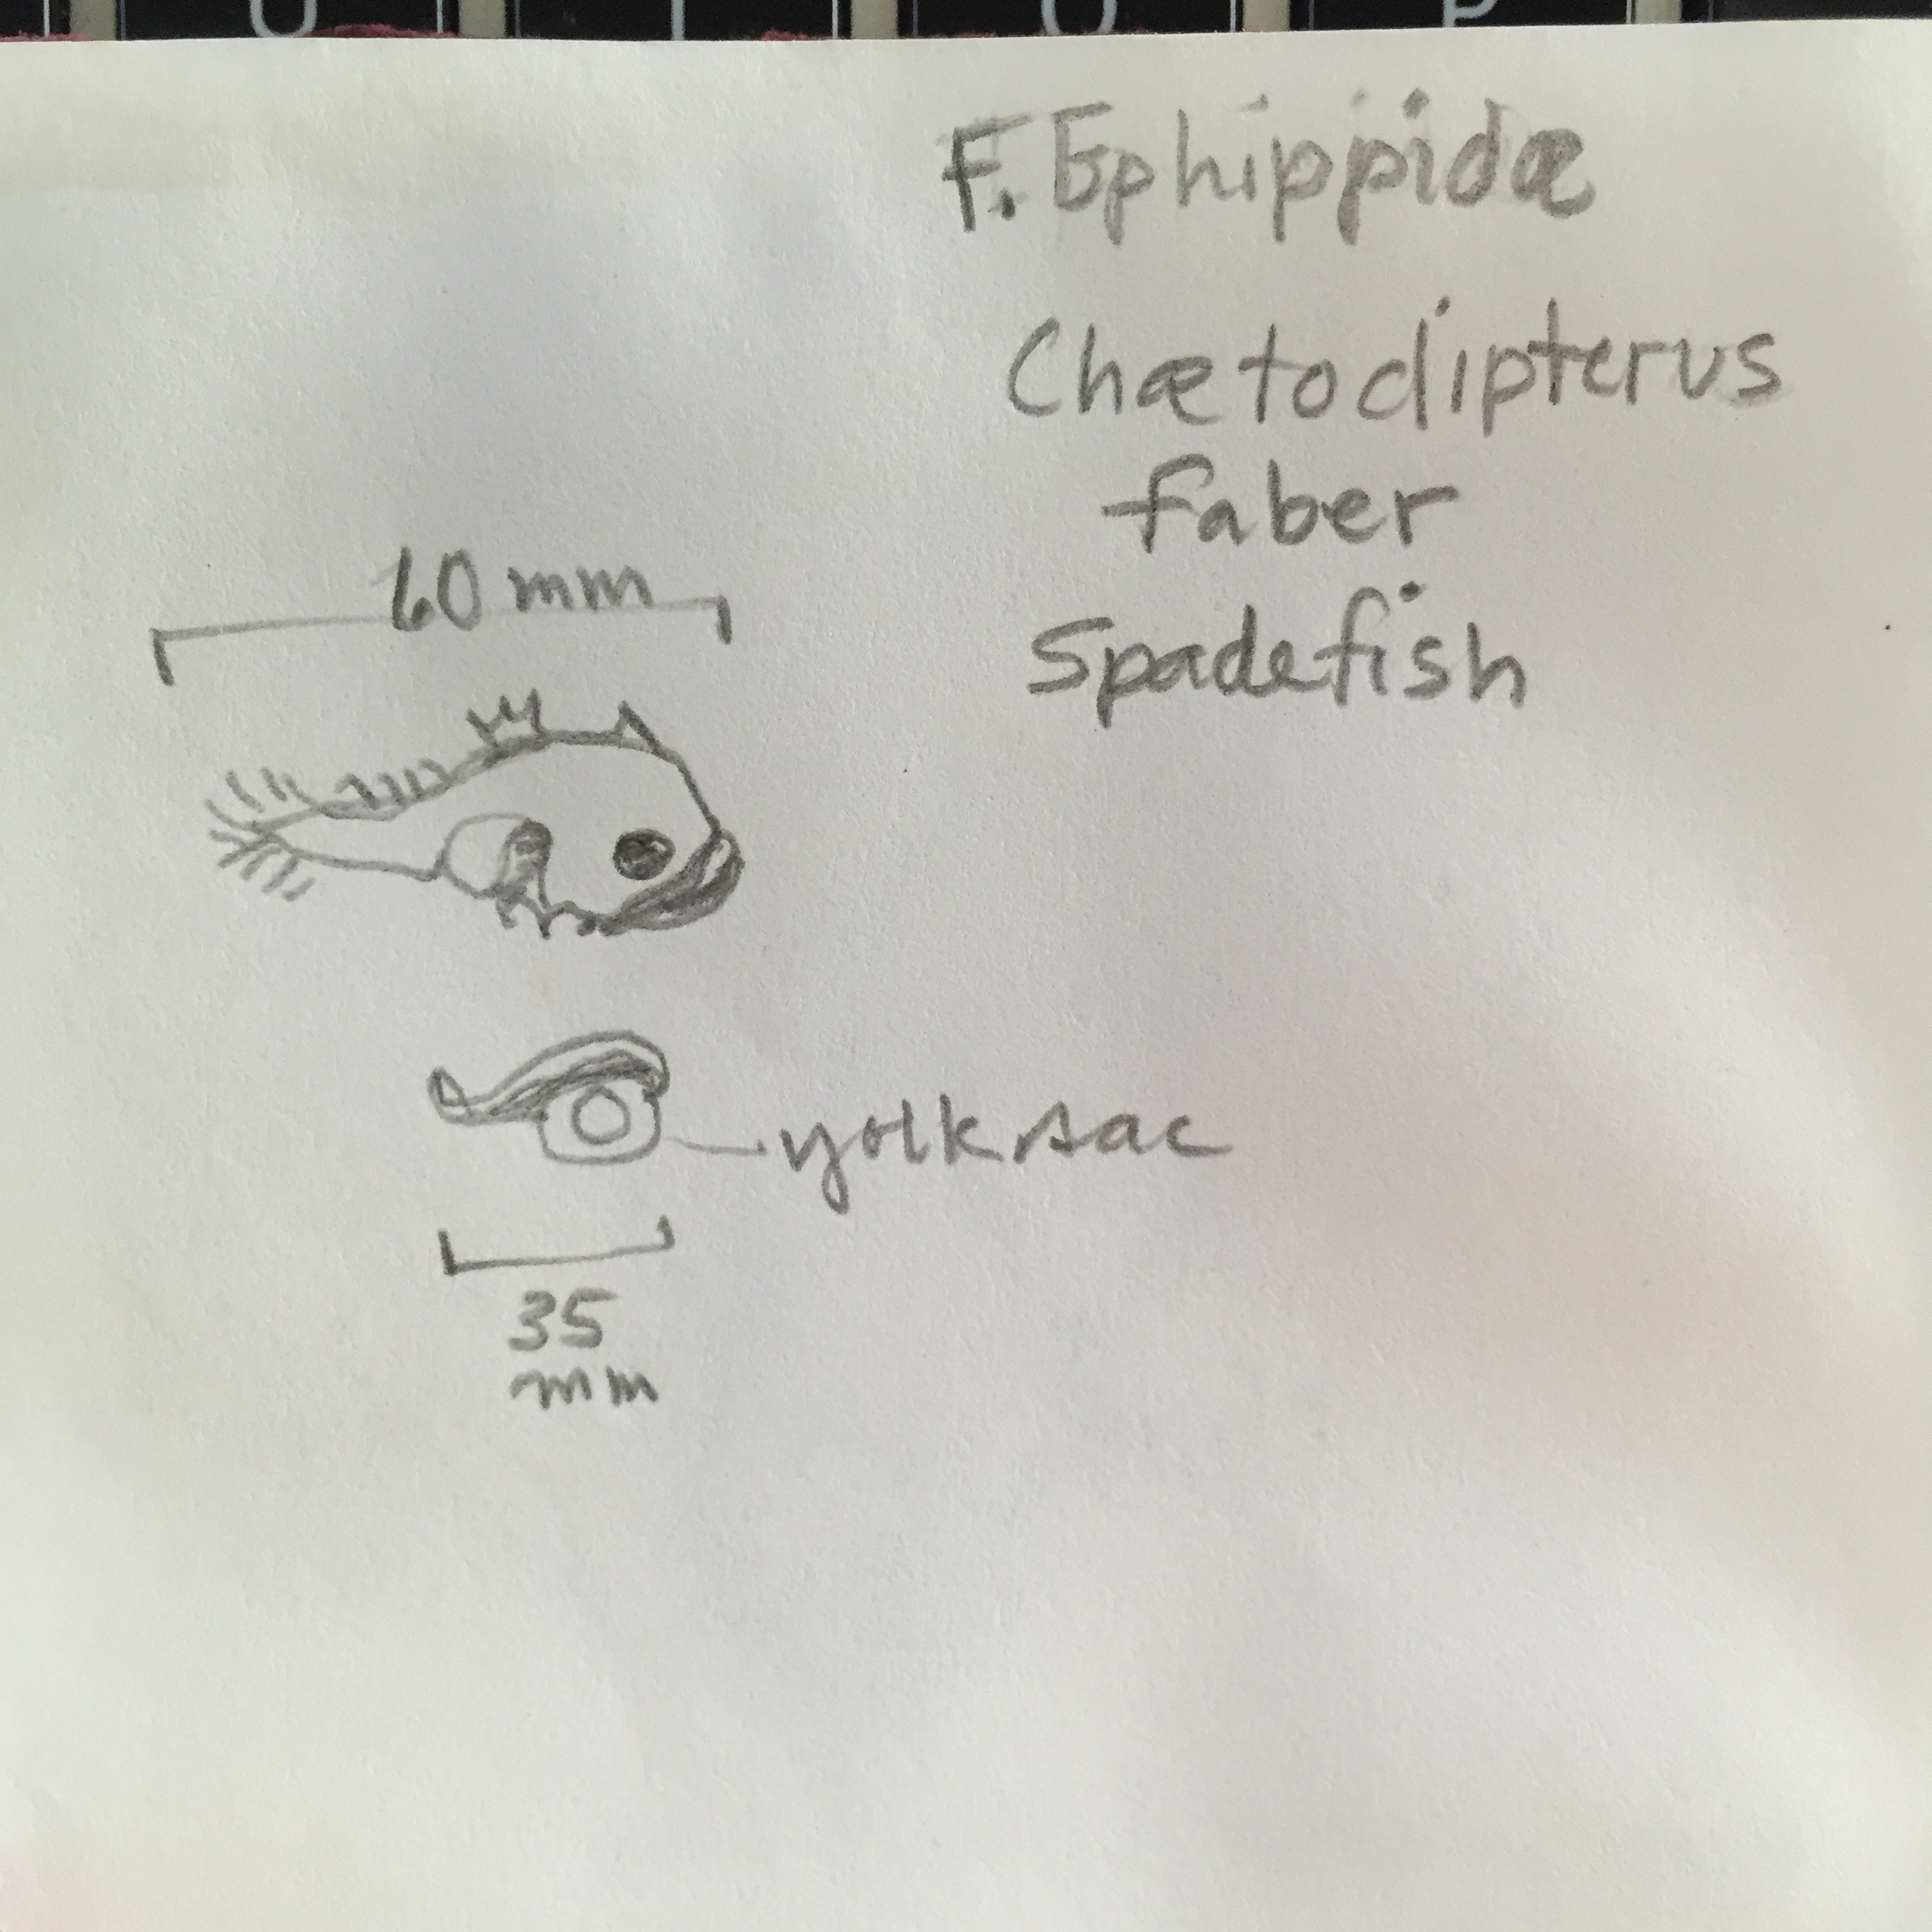 U I O P
F. Ephippidæ
Chætodipterus
faber
Spadefish
60 mm
yolk sac
35
mm